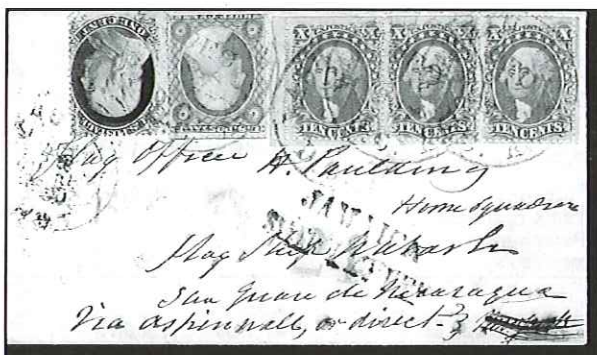 X X X X X X
TEN CENTS. TEN CENTS. TEN CENTS.
Flag Officer H. Paulding
Home Squadron
JAMAICA
SHIP LETTER
Flag Ship Wabash
San Juan de Nicaragua
Via Aspinwall, or direct.